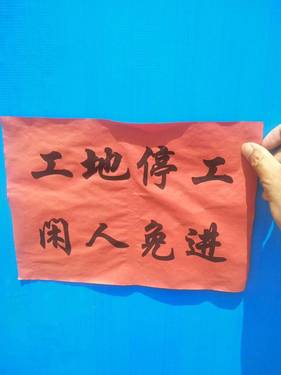 工地停工
闲人免进